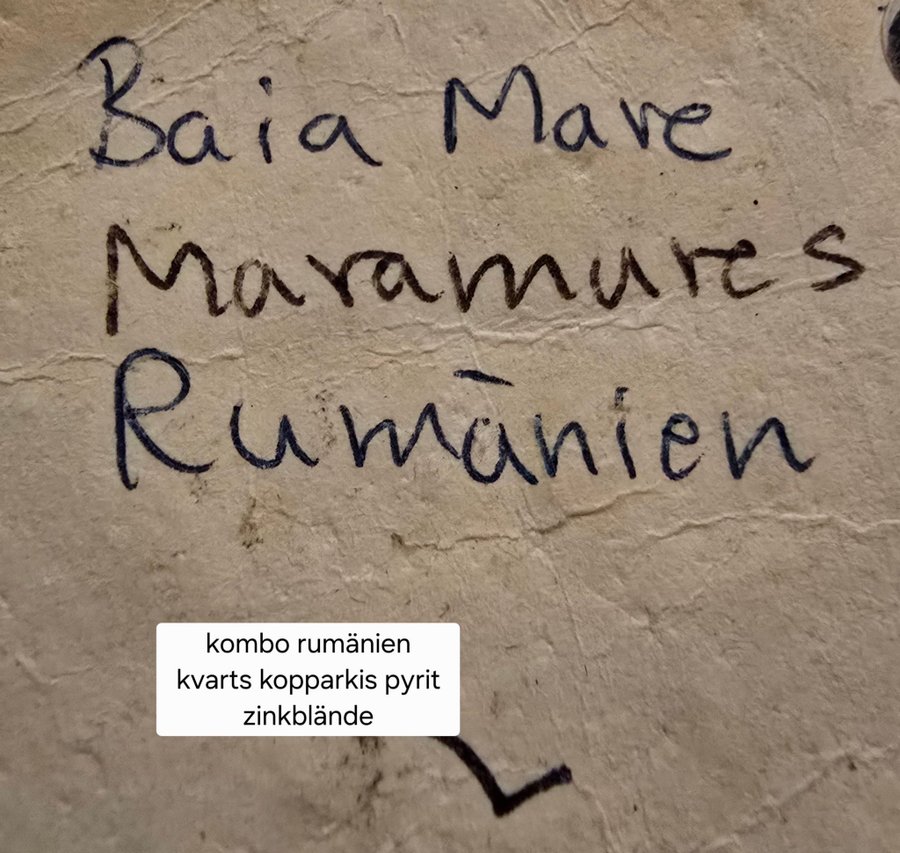 Baia Mare
Maramures
Rumänien
kombo rumänien
kvarts kopparkis pyrit
zinkblände